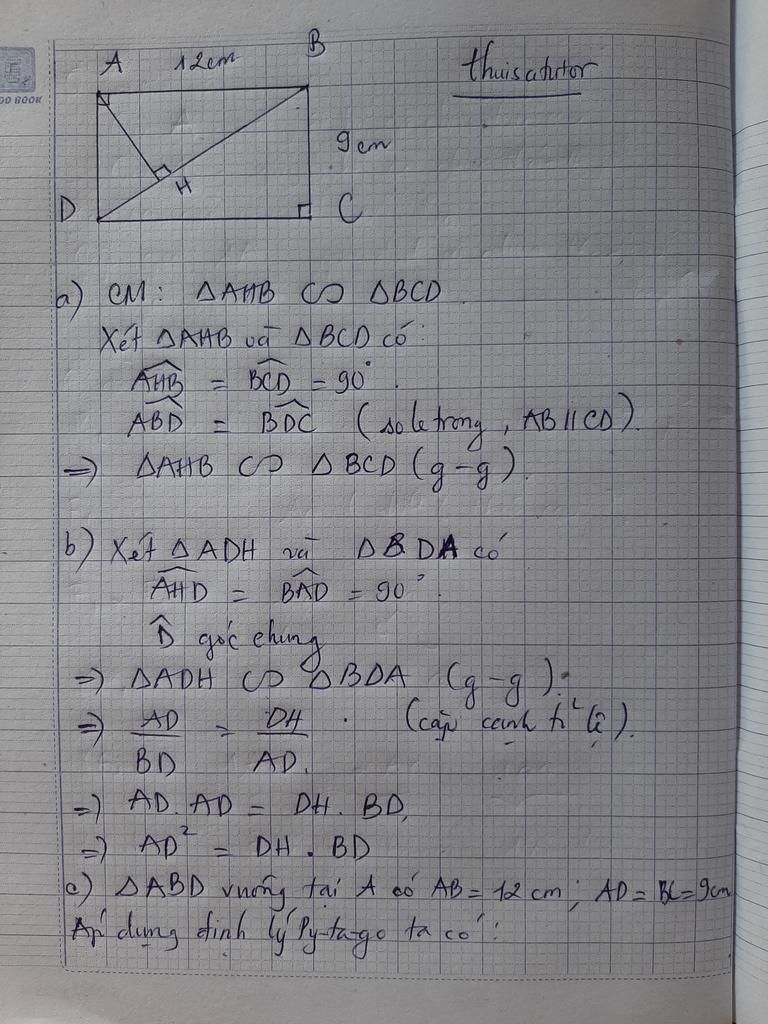 OO BOOK
thuisatutor
A 12cm B
9cm
H
D C
a) CM: ΔAHB ∽ ΔBCD
Xét ΔAHB và ΔBCD có:
\widehat{AHB} = \widehat{BCD} = 90°.
\widehat{ABD} = \widehat{BDC} (so le trong, AB // CD).
=> ΔAHB ∽ ΔBCD (g-g)
b) Xét ΔADH và ΔBDA có
\widehat{AHD} = \widehat{BAD} = 90°.
\widehat{D} góc chung
=> ΔADH ∽ ΔBDA (g-g).
=> AD/BD = DH/AD. (cặp cạnh tỉ lệ).
=> AD.AD = DH.BD,
=> AD² = DH.BD
c) ΔABD vuông tại A có AB = 12cm; AD = BC = 9cm
Áp dụng định lý Py-ta-go ta có: